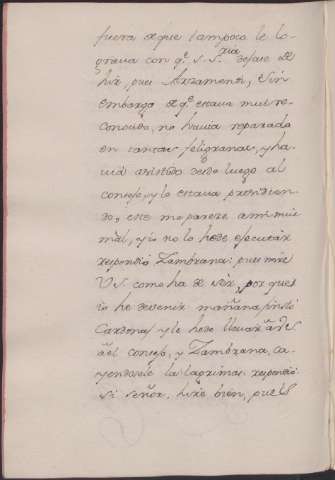 fuera de que tampoco le lo-
graua con q.e S. S.ria dejase de
hir, pues Arzamendi, sin
embargo de q.e estaua mui re-
conocido, no hauia reparado
en tantas filigranas, y ha-
uia asistido desde luego al
consejo, y lo estaua presidien-
do, esto me parece a mi mui
mal, y io no lo hede ejecutar
respondió Zambrana: pues mire
VS. como ha de ser, por que
io he de venir mañana, insistió
Cardona, y le hede lleuar
a el consejo, y Zambrana, ca-
yendosele las lagrimas respondió
Si señor, hiré bien, pues